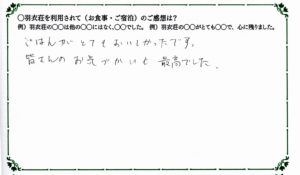 〇羽衣荘を利用されて（お食事・ご宿泊）のご感想は？
例）羽衣荘の〇〇は他の〇〇にはなく、〇〇でした。 例）羽衣荘の〇〇がとても〇〇で、心に残りました。
ごはんがとてもおいしかったです。
皆さんのお気づかいも最高でした。